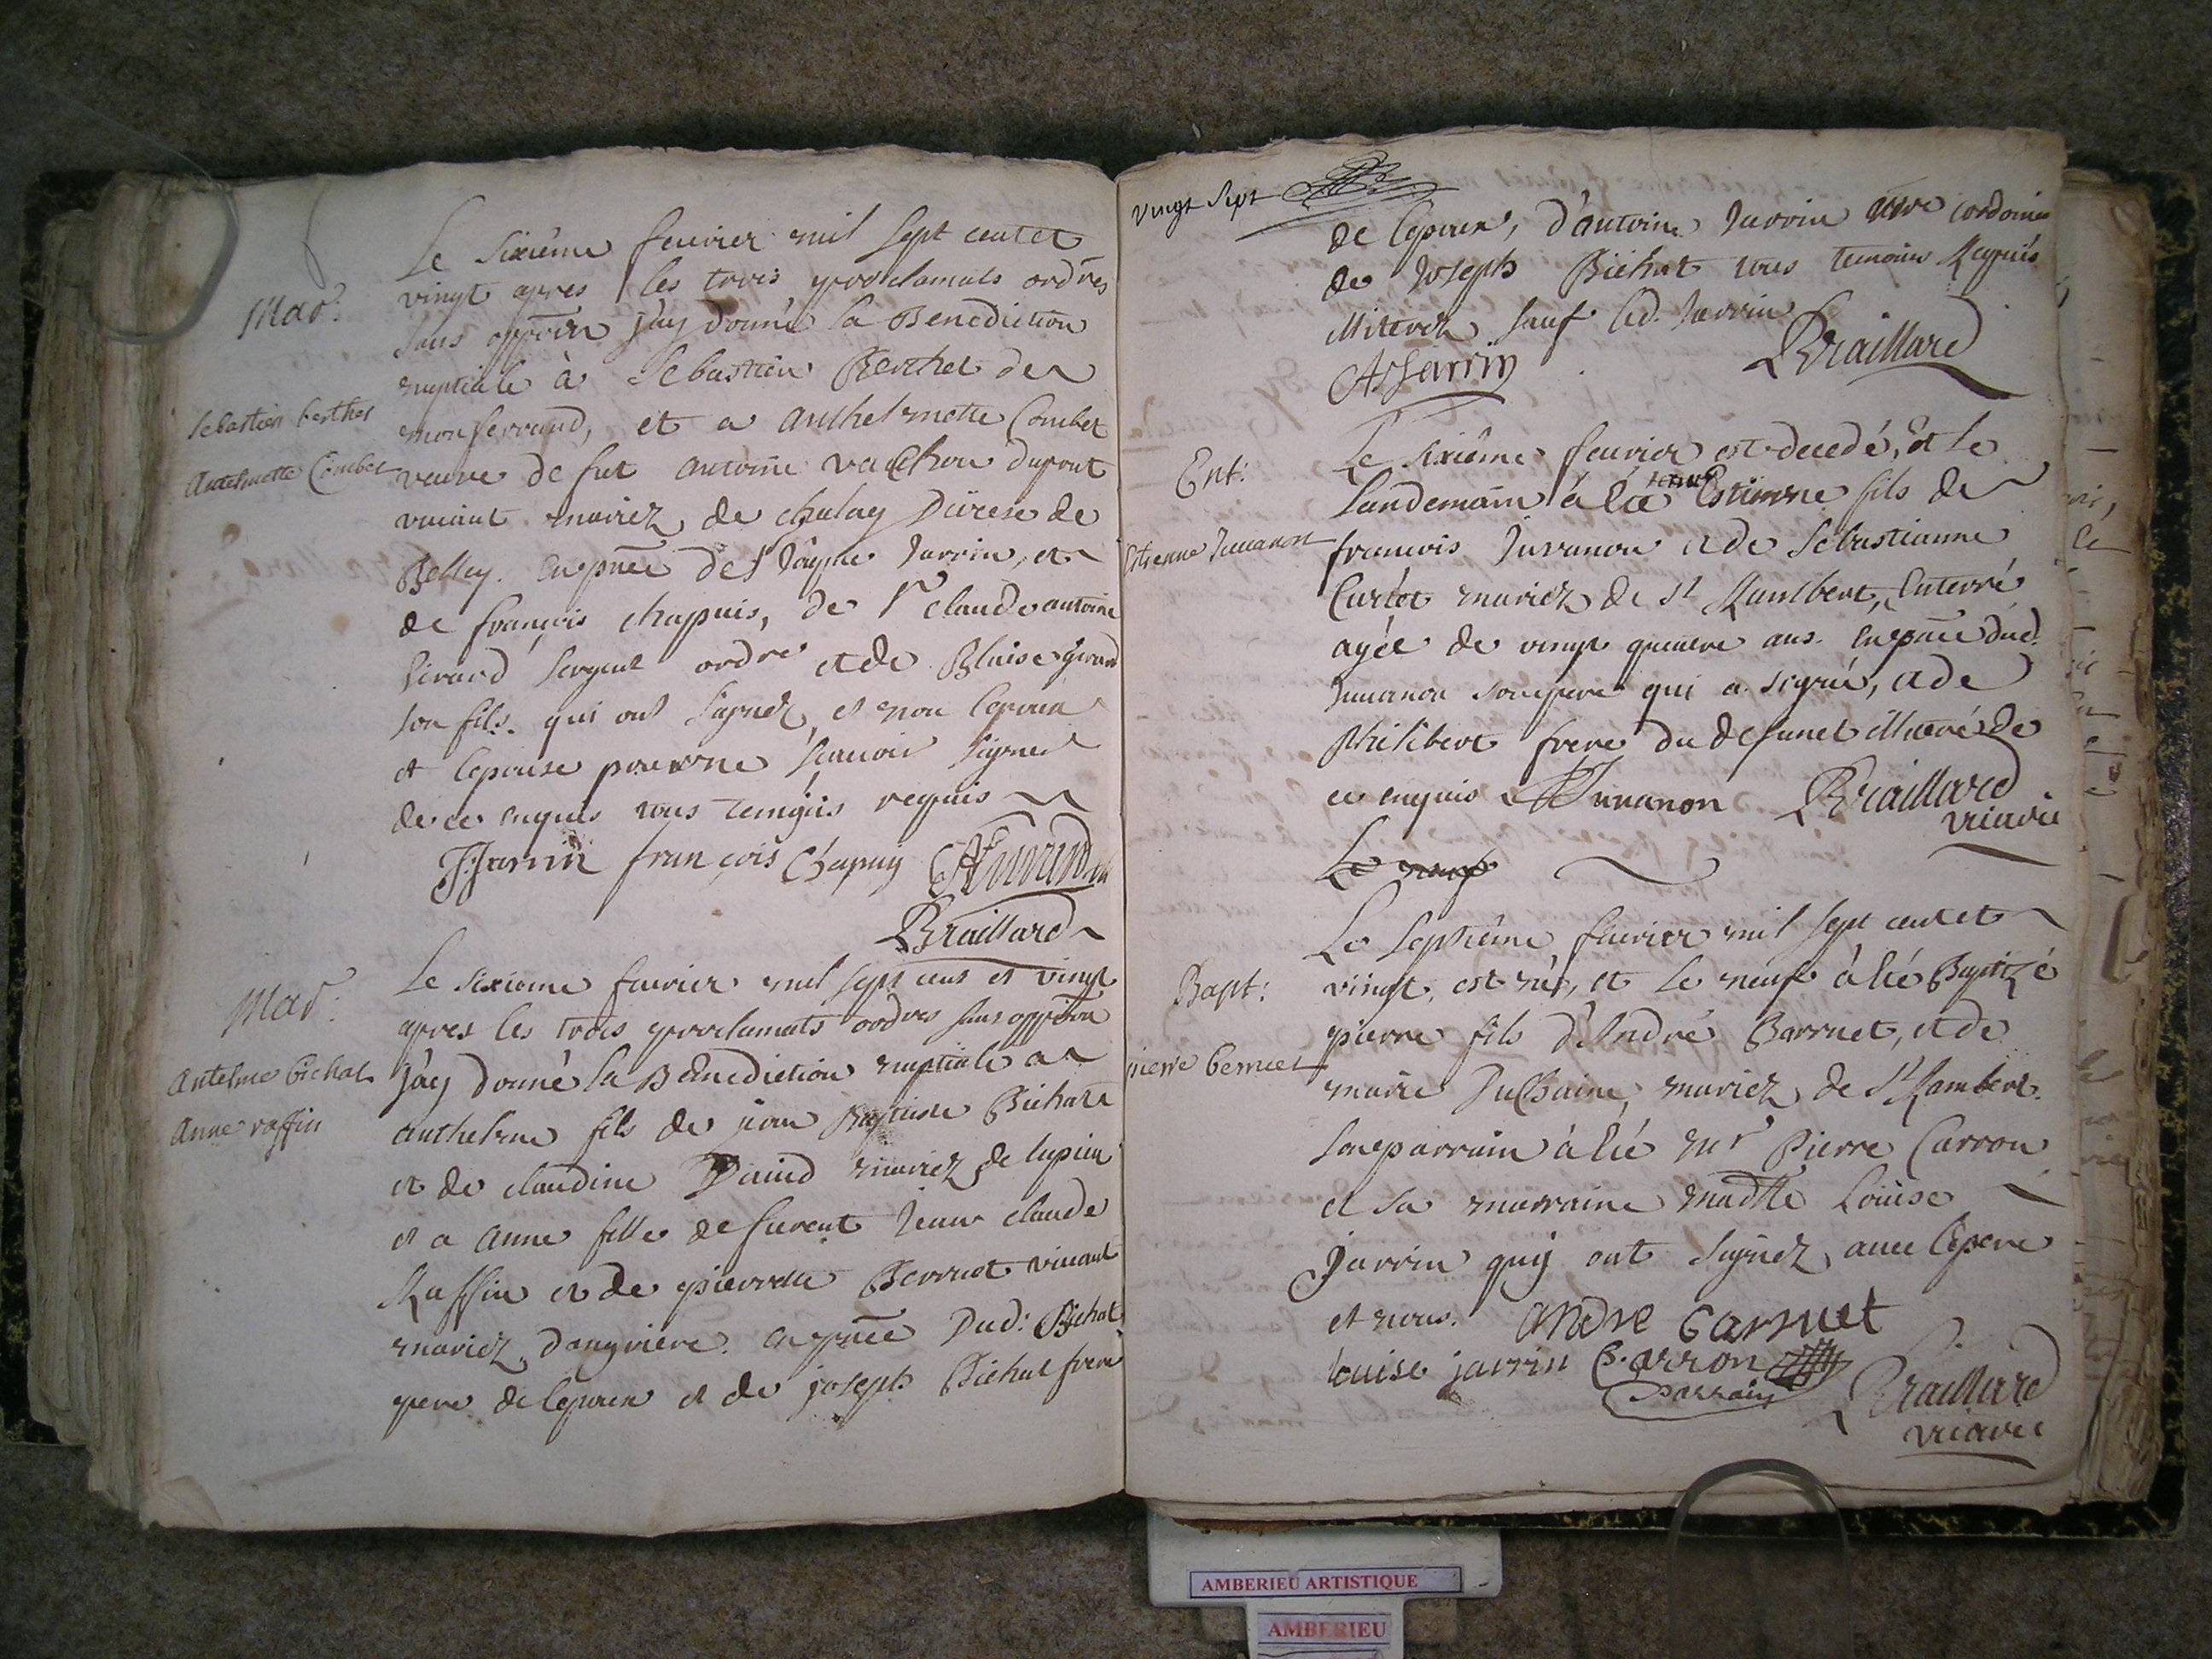 Mar.
Sebastien berthet
Antelmette Combet
Le Sixième feuvier mil Sept centet
vingt apres les trois proclamats ordres
sans opp̄on j'ay donné la Benediction
nuptiale à Sebastien Berthet de
monferrand, et a Anthelmette Combet
veuve de fut antoine vauchon dupont
viuant mariez de chaley Diœcse de
Belley. En pn̄ce de Jarrin, et
de françois chapuis, de Sr claude antoine
Girard Sergent ordre et de Blaise girard
son fils. qui ont Signez et non lepoux
et lepouse pour ne Scauoir Signer
de ce enquis tous temoins requis
J Jarrin françois Chapuy
Braillard
Mar.
Antelme bichat
Anne raffin
Le sixieme feuvier mil sept cens et vingt
apres les trois proclamats ordres sans opp̄on
j'ay donné la Benediction nuptiale a
anthelme fils de jean Baptiste Bichat
et de claudine mariez de lupieu
et a Anne fille de furent Jean claude
Raffin et de pierrette Berruet viuant
mariez d'angriere. En pn̄ce Dud: Bichat
pere de lepoux et de joseph Bichat frere
vingt Sept
de lepoux, d'antoine Jarrin cordonier
de Joseph Bichat tous temoins Requis
illiterez sauf led. Jarrin
A Jarrin Braillard
Ent:
Etienne Juuanon
Le sixième feuvier est decedé, et le
landemain à été Estienne fils de
francois Juvanon et de Sebastianne
Curtet mariez de St Rambert, Enterré
agée de vingt quatre ans. En pn̄ce dud.
Juuanon son pere qui a signé, et de
Philibert frere du defunct illiteré de
ce enquis Juuanon Braillard
vicaire
Le neuf
Bapt:
pierre berruet
Le Septième feuvier mil sept centet
vingt, est né, et le neuf à été Baptizé
pierre fils d'André Barruet, et de
marie Duchaine, mariez de St Rambert.
Son parrain à été mr Pierre Carron
et sa marraine madlle Loüise
Jarrin quy ont signez auec lepere
et nous. andre barruet
louise jarrin Carron
parrain Braillard
vicaire
AMBERIEU ARTISTIQUE
AMBERIEU